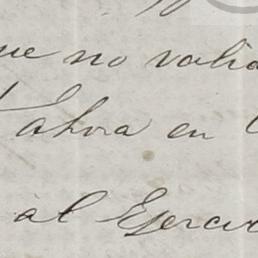 que no valia
ahora en
al Ejercito